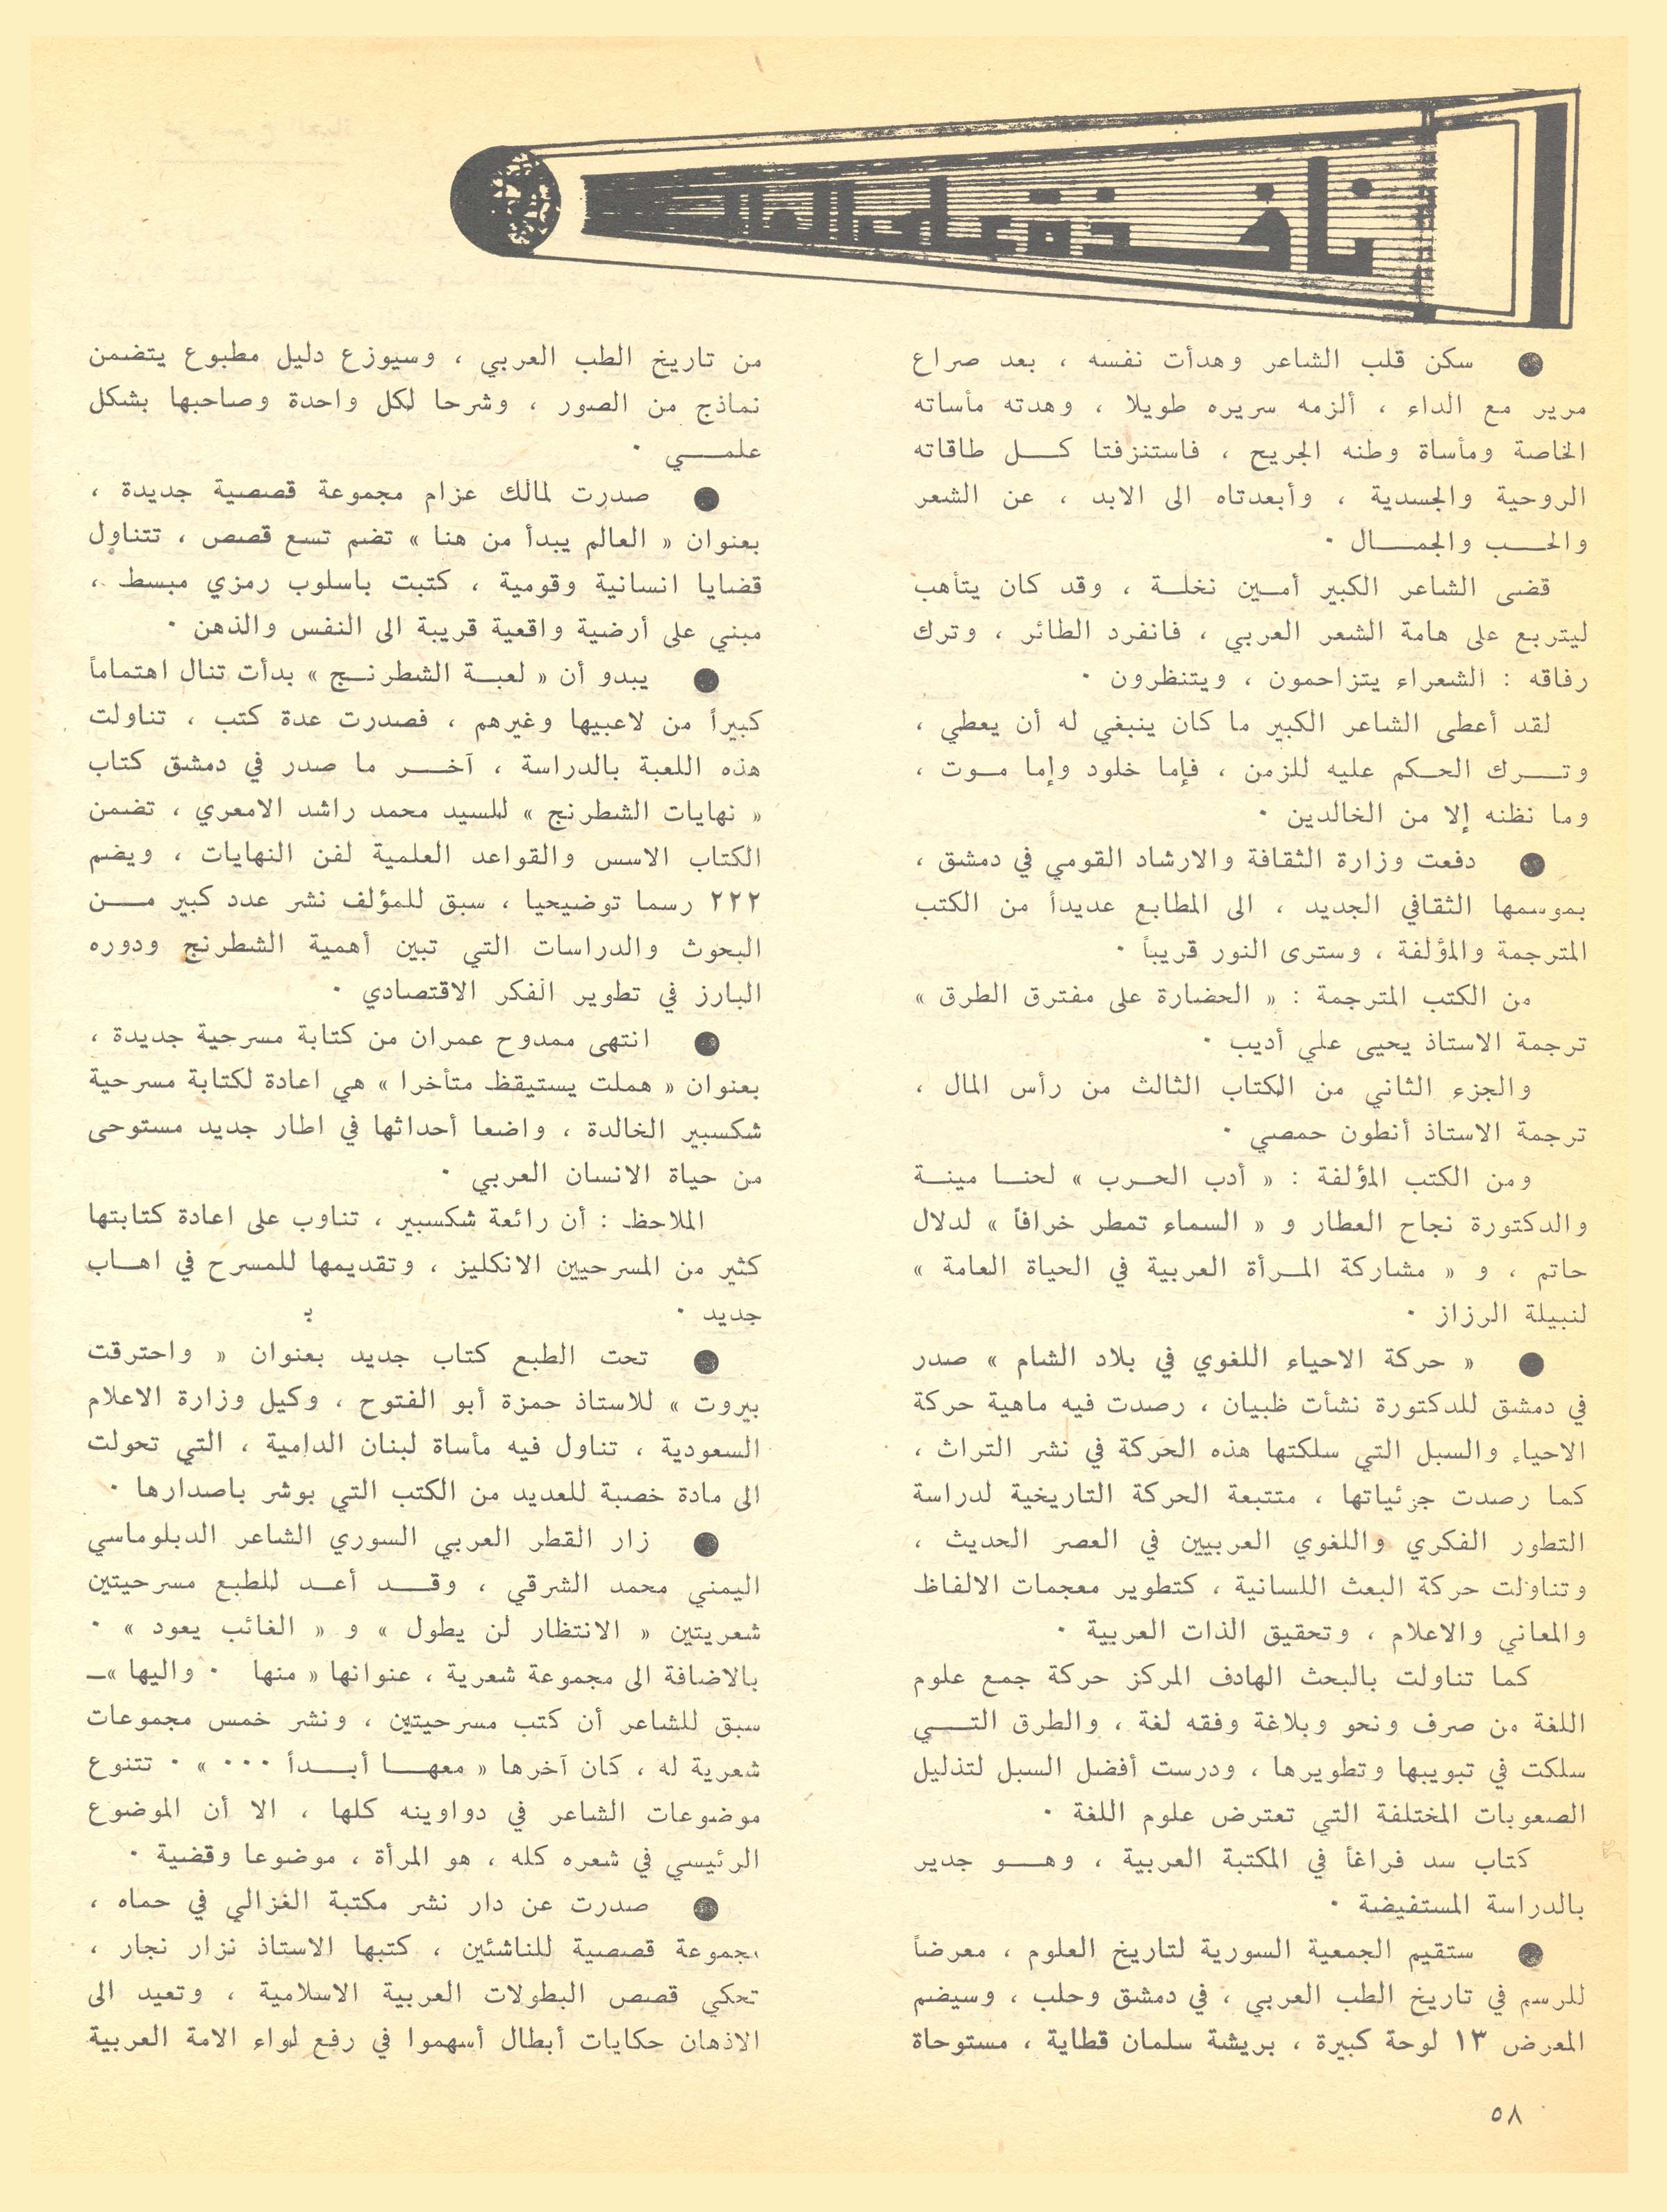 نافذة على العالم
● سكن قلب الشاعر وهدأت نفسه ، بعد صراع
مرير مع الداء ، ألزمه سريره طويلا ، وهدته مأساته
الخاصة ومأساة وطنه الجريح ، فاستنزفتا كل طاقاته
الروحية والجسدية ، وأبعدتاه الى الابد ، عن الشعر
والحب والجمال ٠
قضى الشاعر الكبير أمين نخلة ، وقد كان يتأهب
ليتربع على هامة الشعر العربي ، فانفرد الطائر ، وترك
رفاقه : الشعراء يتزاحمون ، ويتنظرون ٠
لقد أعطى الشاعر الكبير ما كان ينبغي له أن يعطي ،
وترك الحكم عليه للزمن ، فإما خلود وإما موت ،
وما نظنه إلا من الخالدين ٠
● دفعت وزارة الثقافة والارشاد القومي في دمشق ،
بموسمها الثقافي الجديد ، الى المطابع عديداً من الكتب
المترجمة والمؤلفة ، وسترى النور قريباً ٠
من الكتب المترجمة : « الحضارة على مفترق الطرق »
ترجمة الاستاذ يحيى علي أديب ٠
والجزء الثاني من الكتاب الثالث من رأس المال ،
ترجمة الاستاذ أنطون حمصي ٠
ومن الكتب المؤلفة : « أدب الحرب » لحنا مينة
والدكتورة نجاح العطار و « السماء تمطر خرافاً » لدلال
حاتم ، و « مشاركة المرأة العربية في الحياة العامة »
لنبيلة الرزاز ٠
● « حركة الاحياء اللغوي في بلاد الشام » صدر
في دمشق للدكتورة نشأت ظبيان ، رصدت فيه ماهية حركة
الاحياء والسبل التي سلكتها هذه الحركة في نشر التراث ،
كما رصدت جزئياتها ، متتبعة الحركة التاريخية لدراسة
التطور الفكري واللغوي العربيين في العصر الحديث ،
وتناولت حركة البعث اللسانية ، كتطوير معجمات الالفاظ
والمعاني والاعلام ، وتحقيق الذات العربية ٠
كما تناولت بالبحث الهادف المركز حركة جمع علوم
اللغة من صرف ونحو وبلاغة وفقه لغة ، والطرق التي
سلكت في تبويبها وتطويرها ، ودرست أفضل السبل لتذليل
الصعوبات المختلفة التي تعترض علوم اللغة ٠
كتاب سد فراغاً في المكتبة العربية ، وهو جدير
بالدراسة المستفيضة ٠
● ستقيم الجمعية السورية لتاريخ العلوم ، معرضاً
للرسم في تاريخ الطب العربي ، في دمشق وحلب ، وسيضم
المعرض ١٣ لوحة كبيرة ، بريشة سلمان قطاية ، مستوحاة
من تاريخ الطب العربي ، وسيوزع دليل مطبوع يتضمن
نماذج من الصور ، وشرحا لكل واحدة وصاحبها بشكل
علمي ٠
● صدرت لمالك عزام مجموعة قصصية جديدة ،
بعنوان « العالم يبدأ من هنا » تضم تسع قصص ، تتناول
قضايا انسانية وقومية ، كتبت باسلوب رمزي مبسط ،
مبني على أرضية واقعية قريبة الى النفس والذهن ٠
● يبدو أن « لعبة الشطرنج » بدأت تنال اهتماماً
كبيراً من لاعبيها وغيرهم ، فصدرت عدة كتب ، تناولت
هذه اللعبة بالدراسة ، آخر ما صدر في دمشق كتاب
« نهايات الشطرنج » للسيد محمد راشد الامعري ، تضمن
الكتاب الاسس والقواعد العلمية لفن النهايات ، ويضم
٢٢٢ رسما توضيحيا ، سبق للمؤلف نشر عدد كبير من
البحوث والدراسات التي تبين أهمية الشطرنج ودوره
البارز في تطوير الفكر الاقتصادي ٠
● انتهى ممدوح عمران من كتابة مسرحية جديدة ،
بعنوان « هملت يستيقظ متأخرا » هي اعادة لكتابة مسرحية
شكسبير الخالدة ، واضعا أحداثها في اطار جديد مستوحى
من حياة الانسان العربي ٠
الملاحظ : أن رائعة شكسبير ، تناوب على اعادة كتابتها
كثير من المسرحيين الانكليز ، وتقديمها للمسرح في اهاب
جديد ٠
● تحت الطبع كتاب جديد بعنوان « واحترقت
بيروت » للاستاذ حمزة أبو الفتوح ، وكيل وزارة الاعلام
السعودية ، تناول فيه مأساة لبنان الدامية ، التي تحولت
الى مادة خصبة للعديد من الكتب التي بوشر باصدارها ٠
● زار القطر العربي السوري الشاعر الدبلوماسي
اليمني محمد الشرقي ، وقد أعد للطبع مسرحيتين
شعريتين « الانتظار لن يطول » و « الغائب يعود » ٠
بالاضافة الى مجموعة شعرية ، عنوانها « منها ٠ واليها »ـ
سبق للشاعر أن كتب مسرحيتين ، ونشر خمس مجموعات
شعرية له ، كان آخرها « معها أبدأ ٠٠٠ » ٠ تتنوع
موضوعات الشاعر في دواوينه كلها ، الا أن الموضوع
الرئيسي في شعره كله ، هو المرأة ، موضوعا وقضية ٠
● صدرت عن دار نشر مكتبة الغزالي في حماه ،
مجموعة قصصية للناشئين ، كتبها الاستاذ نزار نجار ،
تحكي قصص البطولات العربية الاسلامية ، وتعيد الى
الاذهان حكايات أبطال أسهموا في رفع لواء الامة العربية
٥٨